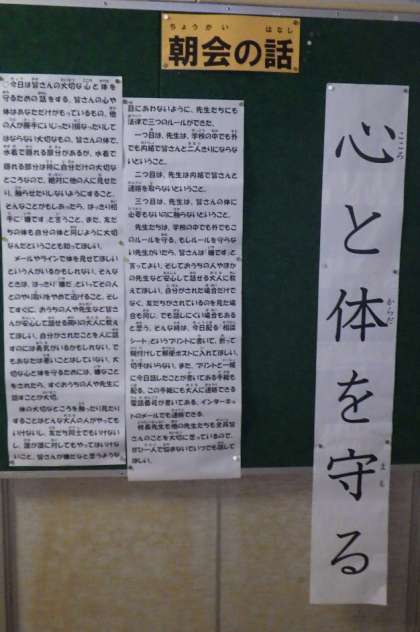 ちょうかい はなし
朝会の話
今日は皆さんの大切な心と体を
守るための話をする。皆さんの心や
体はあなただけがもっているもの。他
の人が勝手にいじったり損なったりして
はならない大切なもの。皆さんの体で、
水着で隠れる部分があるが、水着で
隠れる部分は特に自分だけの大切な
ところなので、絶対に他の人に見せた
り、触らせたりしないようにすること。
そんなことがもしあったら、はっきり相
手に「嫌です」と言うこと。また、友だ
ちの体も自分の体と同じように大切
なんだということも知ってほしい。
メールやラインで体を見せてほしい
という人がいるかもしれない。そんな
ときは、はっきり「嫌だ」といってその人
とのやり取りをやめて逃げること。そし
てすぐに、おうちの人や先生など皆さ
んが安心して話せる周りの大人に教え
てほしい。自分がされたことを人に話
すのには勇気がいるかもしれない。で
もあなたは悪いことはしていない。大
切な心と体を守るためには、嫌なこと
をされたら、すぐおうちの人や先生に
話すことが大切。
体の大切なところを触ったり見たり
することはどんな大人の人がやっても
いけないし、友だち同士でもいけない
し、誰が誰に対してもやってはいけな
いこと。皆さんが嫌だなと思うような
目にあわないように、先生たちにも
法律で三つのルールができた。
一つ目は、先生は、学校の中でも外
でも内緒で皆さんと二人きりにならな
いということ。
二つ目は、先生は内緒で皆さんと
連絡を取らないということ。
三つ目は、先生は、皆さんの体に
必要もないのに触らないということ。
先生たちは、学校の中でも外でもこ
のルールを守る。もしルールを守らな
い先生がいたら、皆さんは「嫌です」と
言ってよい。そしておうちの人やほか
の先生など安心して話せる大人に教
えてほしい。自分がされた場合だけで
なく、友だちがされているのを見た場
合も同じ。でも話しにくい場合もある
と思う。そんな時は、今日配る「相談
シート」というプリントに書いて、折って
糊付けして郵便ポストに入れてほしい。
切手はいらない。また、プリントと一緒
に今日話したことが書いてある手紙も
配る。この手紙にも大人に連絡できる
電話番号が書いてある。インターネッ
トのメールでも連絡できる。
校長先生も他の先生たちも全員皆
さんのことを大切に思っているので、
ぜひ一人で悩まないでいつでも話して
ほしい。
心と体を守る
こころ
からだ
まも